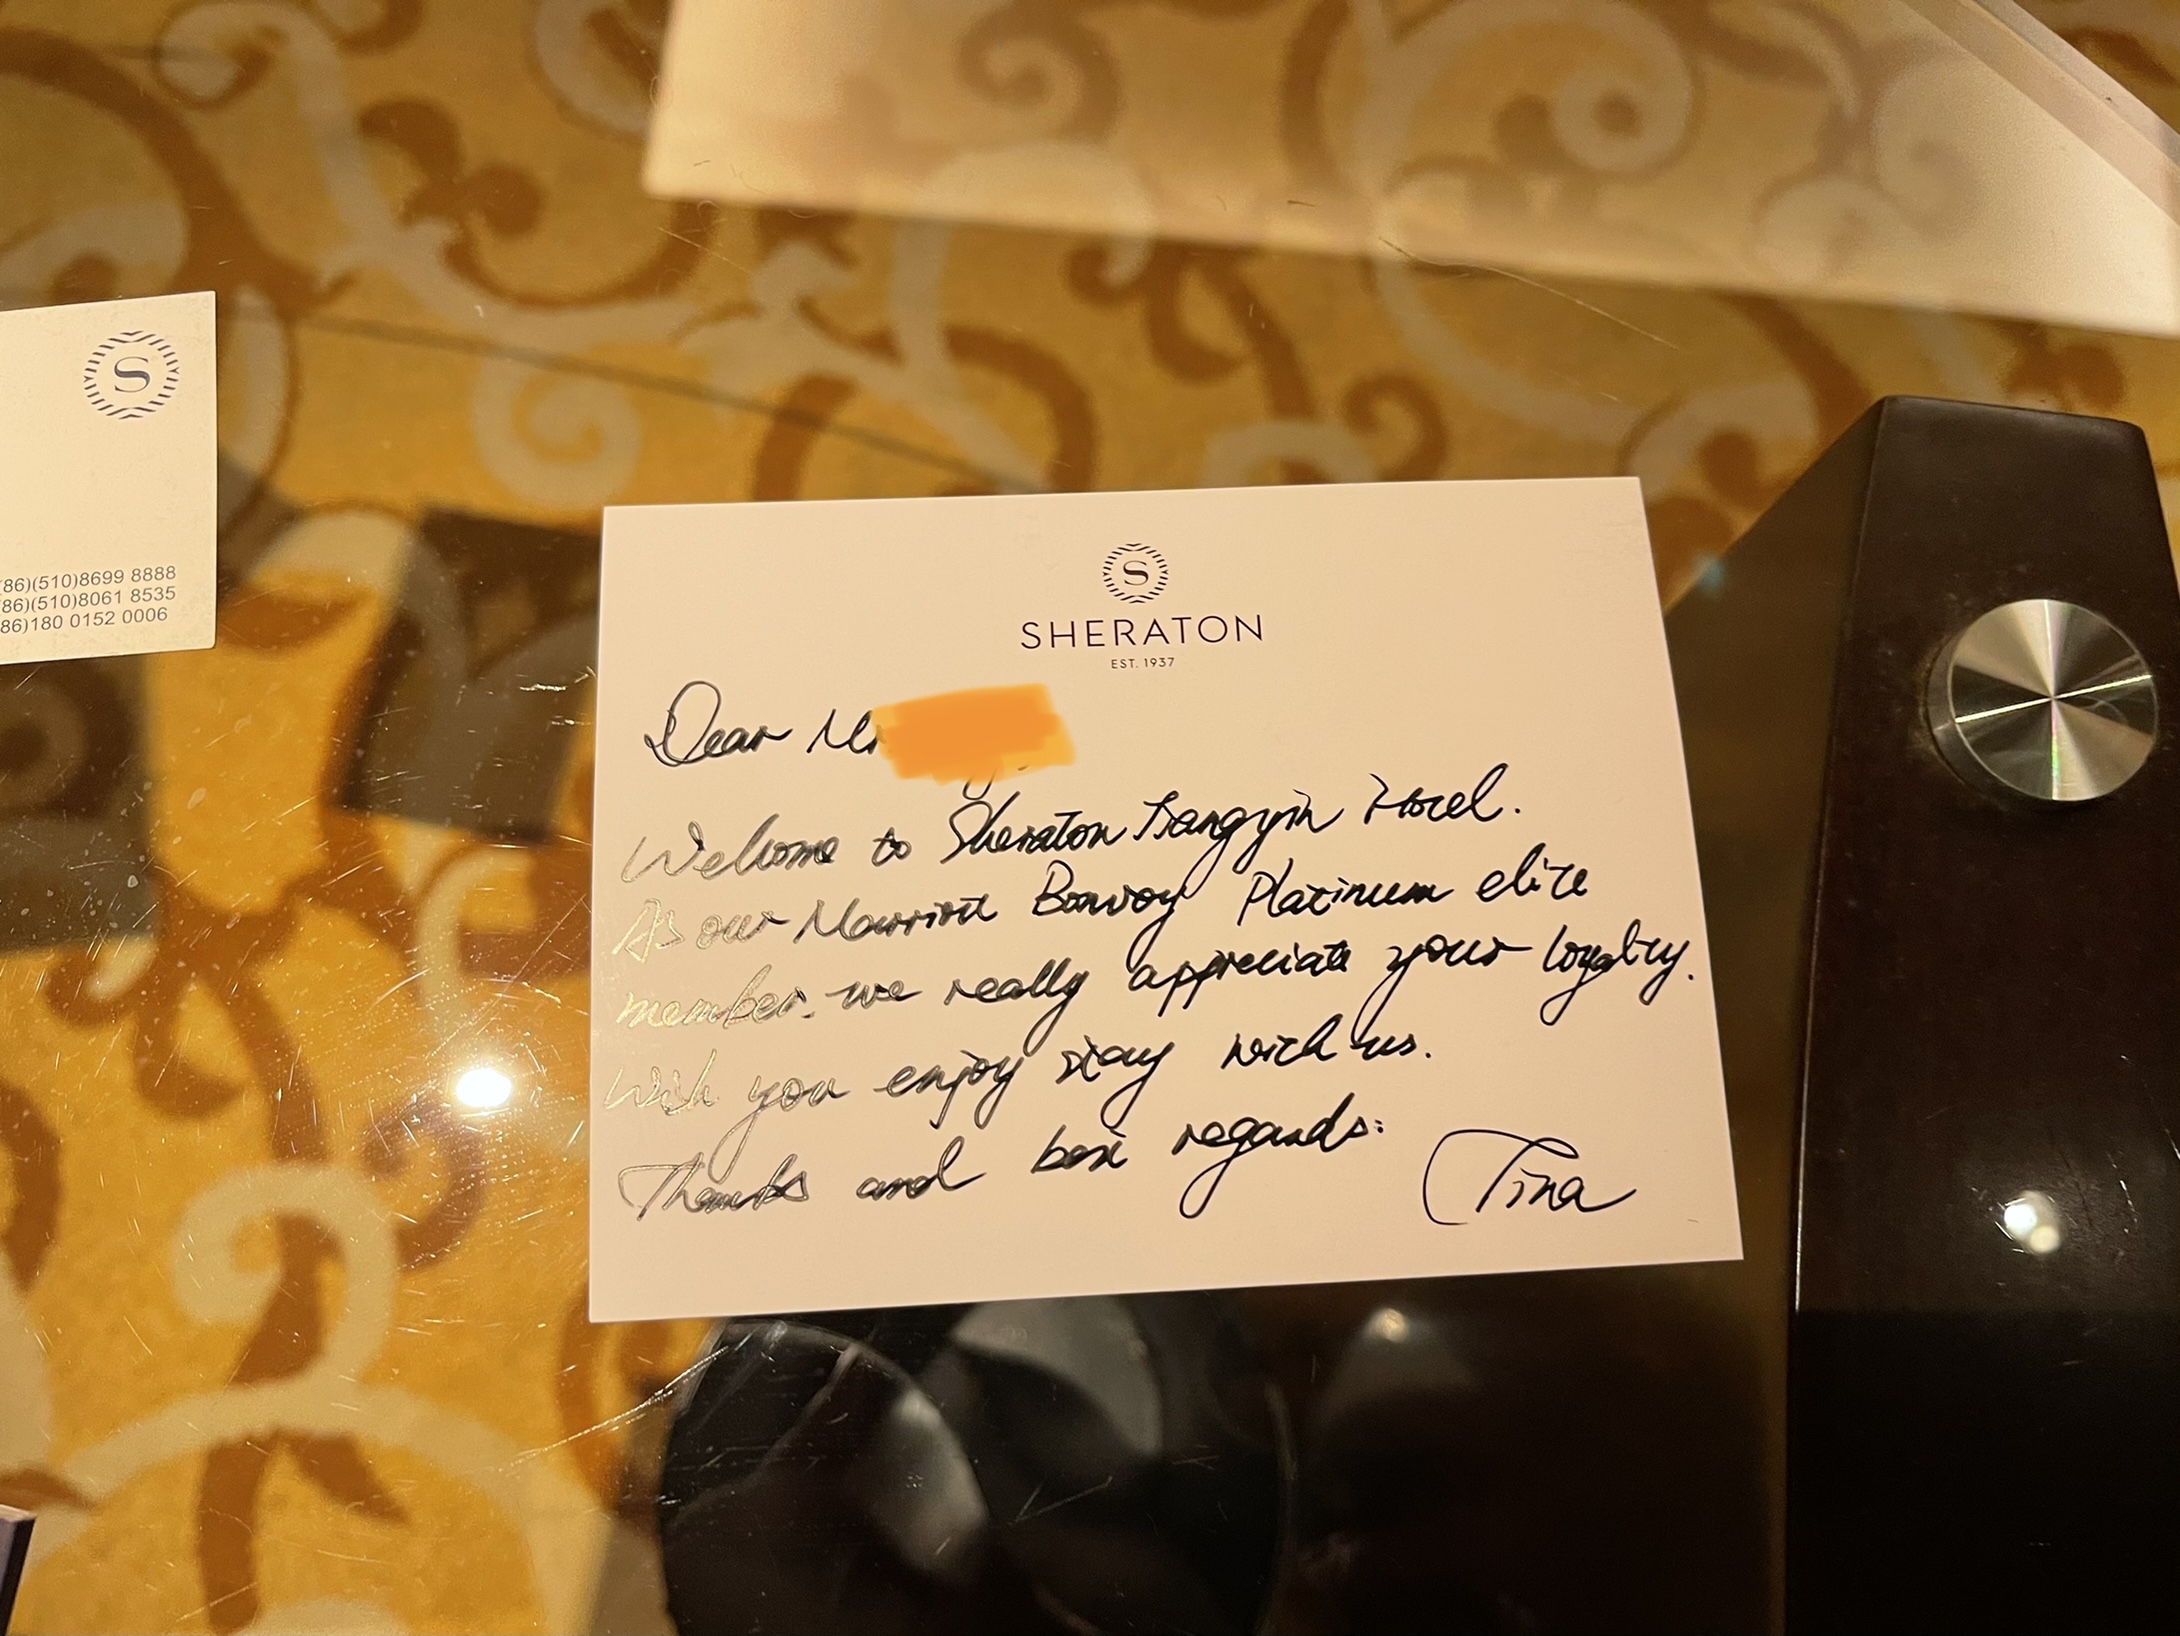 S
(86)(510)8699 8888
(86)(510)8061 8535
86)180 0152 0006
S
SHERATON
EST. 1937
Dear Mr
Welcome to Sheraton Jiangyin Hotel.
As our Marriott Bonvoy Platinum elite
member. we really appreciate your loyalty.
Wish you enjoy stay with us.
Thanks and best regards:
Tina